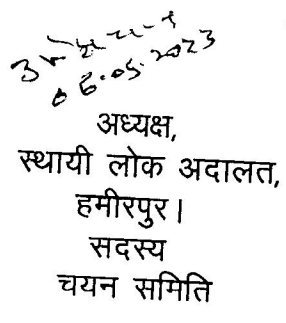 06.05.2023
अध्यक्ष,
स्थायी लोक अदालत,
हमीरपुर।
सदस्य
चयन समिति